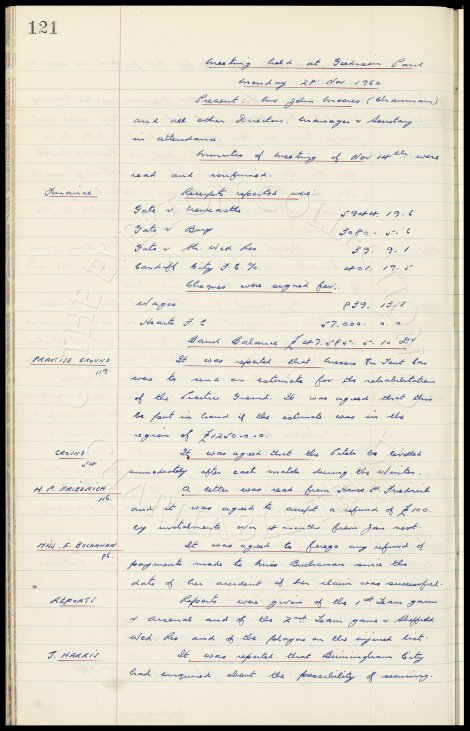 121
Meeting held at Goodison Park
Monday 28th Nov 1960
Present: Mr John Moores (Chairman)
and all other Directors. Manager & Secretary
in attendance.
Minutes of Meeting of Nov 14th were
read and confirmed.
Finance Receipts reported were:
Gate v Newcastle 5944. 19. 6
Gate v Bury 3080. 5. 6
Gate v Sh. Wed Res 39. 9. 1
Cardiff City F.C. %. 401. 19. 5
Cheques were signed for:
Wages 839. 13. 1
Hearts F.C. 57.000. 0. 0
Bank Balance £47.585. 5. 10 Dr
PRACTISE GROUND It was reported that Messrs En Tout Cas
119 were to send an estimate for the rehabilitation
of the Practice Ground. It was agreed that this
be put in hand if the estimate was in the
region of £1250.0.0.
GROUND It was agreed that the Pitch be levelled
54 immediately after each match during the Winter.
H. P. FRIEDRICH A letter was read from Hans P. Friedrich
116. and it was agreed to accept a refund of £100.
by instalments over 4 months from Jan next.
MISS F. BUCHANAN It was agreed to forego any refund of
86. payments made to Miss Buchanan since the
date of her accident if her claim was successful.
REPORTS Reports were given of the 1st Team game
v Arsenal and of the 2nd Team game v Sheffield
Wed. Res and of the players on the injured list.
J. HARRIS It was reported that Birmingham City
had enquired about the possibility of securing
THE EVERTON COLLECTION
CHARITABLE